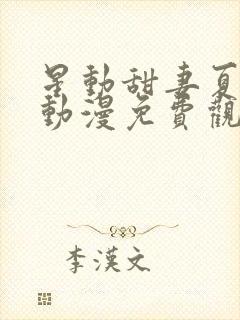 星動甜妻夏
動漫免費觀
李漢文